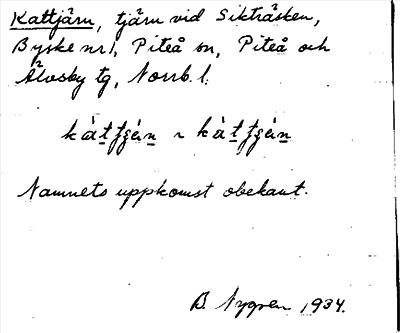 Kattjärn, tjärn vid Sikträsken,
Byske nr 1, Piteå sn, Piteå och
Älvsby tg, Norrb. l.
Namnets uppkomst obekant.
B. Nygren 1934.